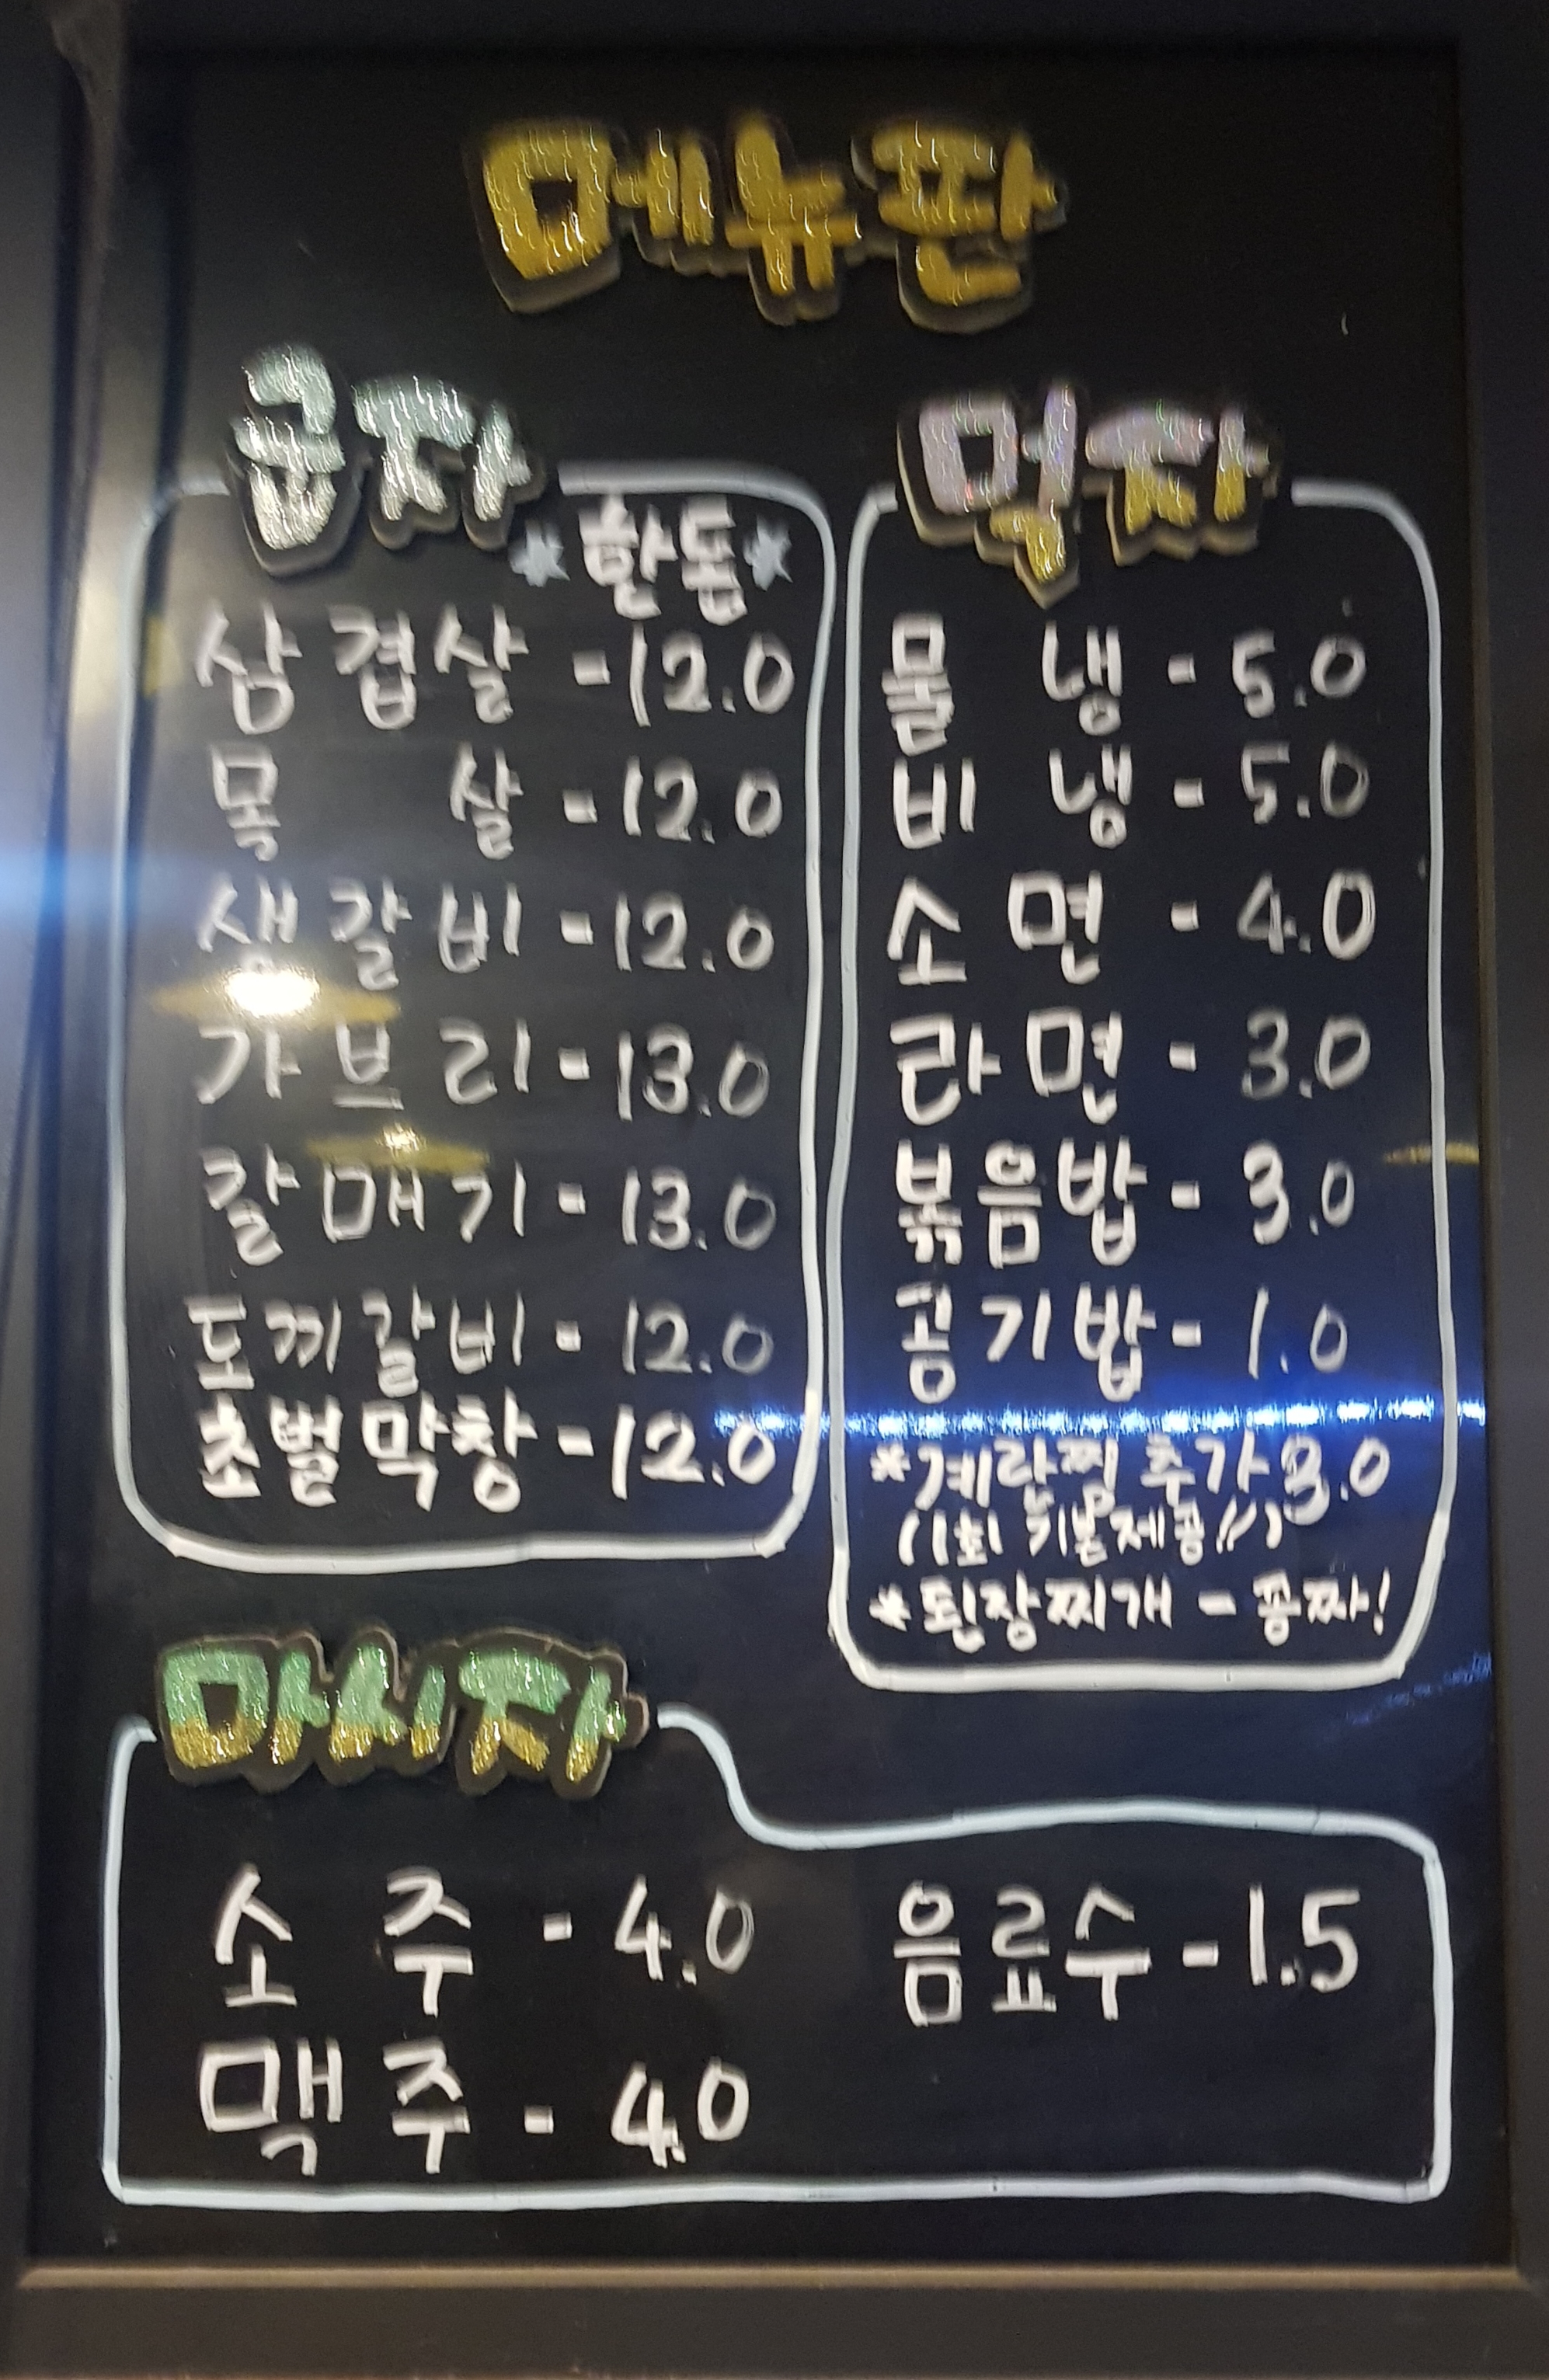 메뉴판
굽자
*한돈*
삼겹살 - 12.0
목 살 - 12.0
생갈비 - 12.0
가브리 - 13.0
갈매기 - 13.0
도끼갈비 - 12.0
초벌막창 - 12.0
먹자
물 냉 - 5.0
비 냉 - 5.0
소면 - 4.0
라면 - 3.0
볶음밥 - 3.0
공기밥 - 1.0
*계란찜 추가 3.0
(1회 기본제공!!)
*된장찌개 - 공짜!
마시자
소 주 - 4.0
맥 주 - 4.0
음료수 - 1.5